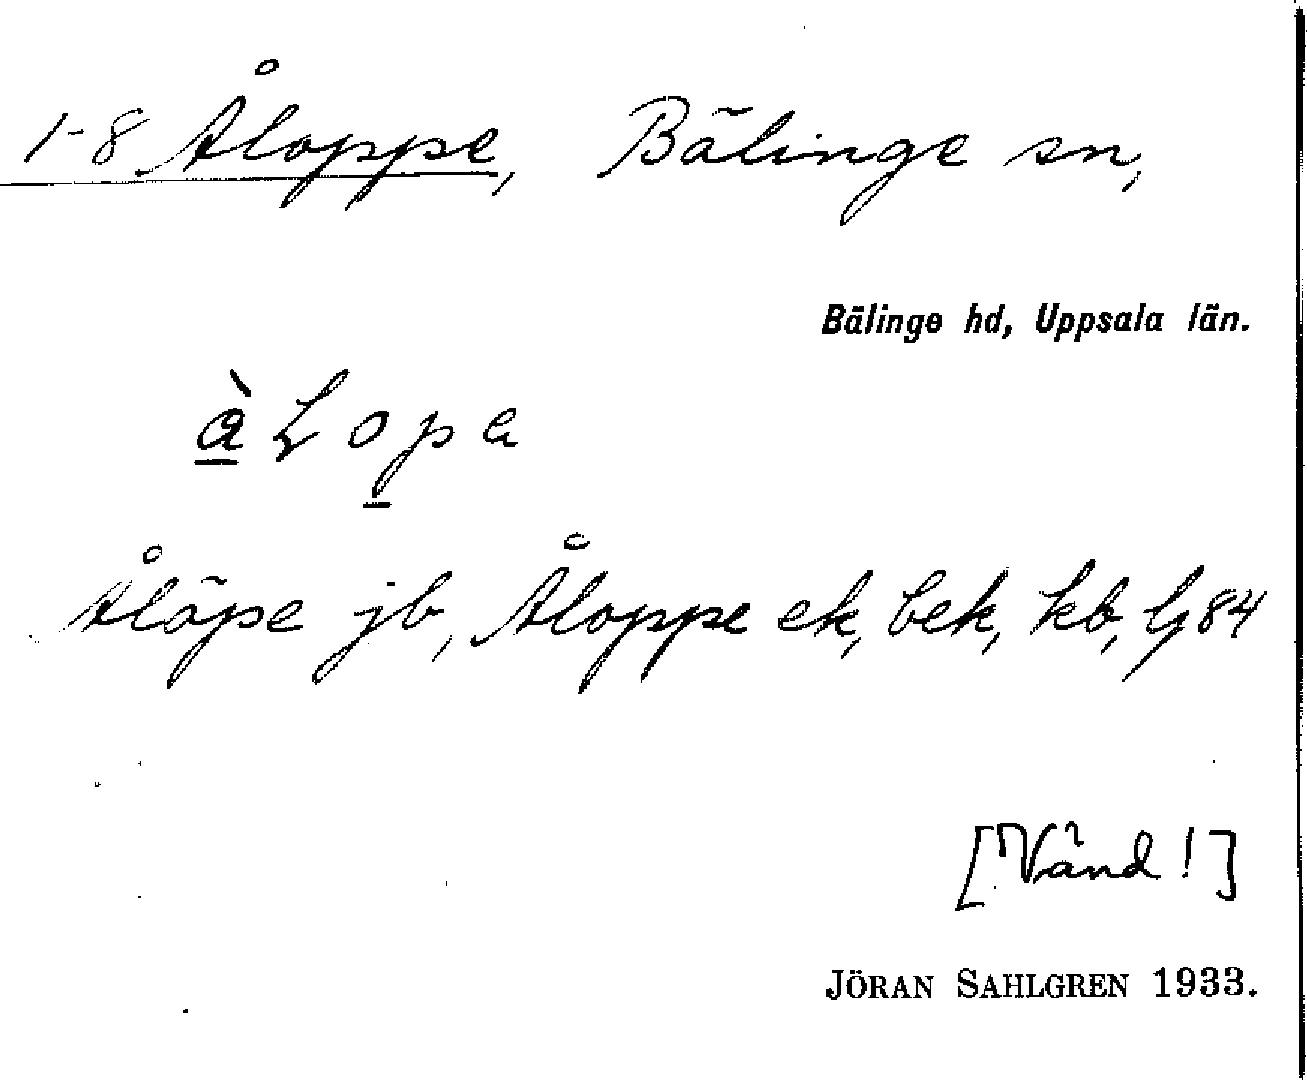 1-8 Åloppe, Bälinge sn,
Bälinge hd, Uppsala län.
Ålöpe jb, Åloppe ek, bek, kb,
[Vänd!]
JÖRAN SAHLGREN 1933.